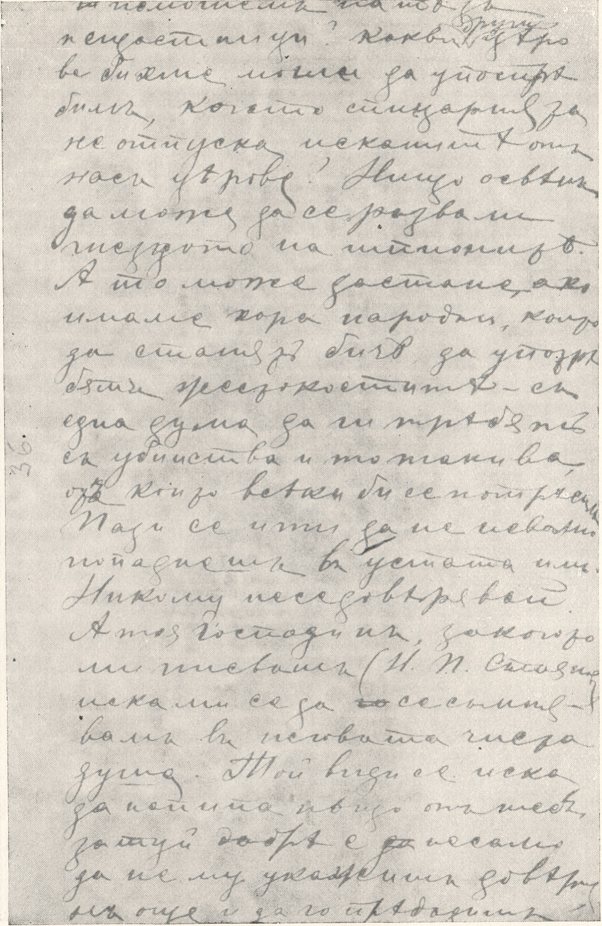 помогнемъ на тѣзъ
нещастници? какви други цѣро
ве бихме могли да употрѣ
бимъ, когато спицария за
не отпуска исканитѣ отъ
насъ цѣрове? Нищо освѣнъ
да може да се развали
гнездото на шпионирѣ.
А то може да стане, ако
имаме хора народни, които
да станѫтъ бичъ, да употрѣ
бятъ жестокоститѣ – съ
една дума да ги трѣбятъ
съ убийства и то такива,
отъ които всѣки би се потрѣсилъ
Пази се и ти да не неволно
попаднешъ въ устата имъ.
Никому не се довѣрявай.
А тоя Господинъ, за когото
ми пишешъ (Н. П. Стояновъ)
искамъ да се съмнѣ-
вамъ въ неговата чиста
душа. Той види се иска
да напипа нѣщо отъ тебѣ,
затуй добрѣ е не само
да не му укажешъ довѣрие
нъ още и да го прѣдадешъ
36.